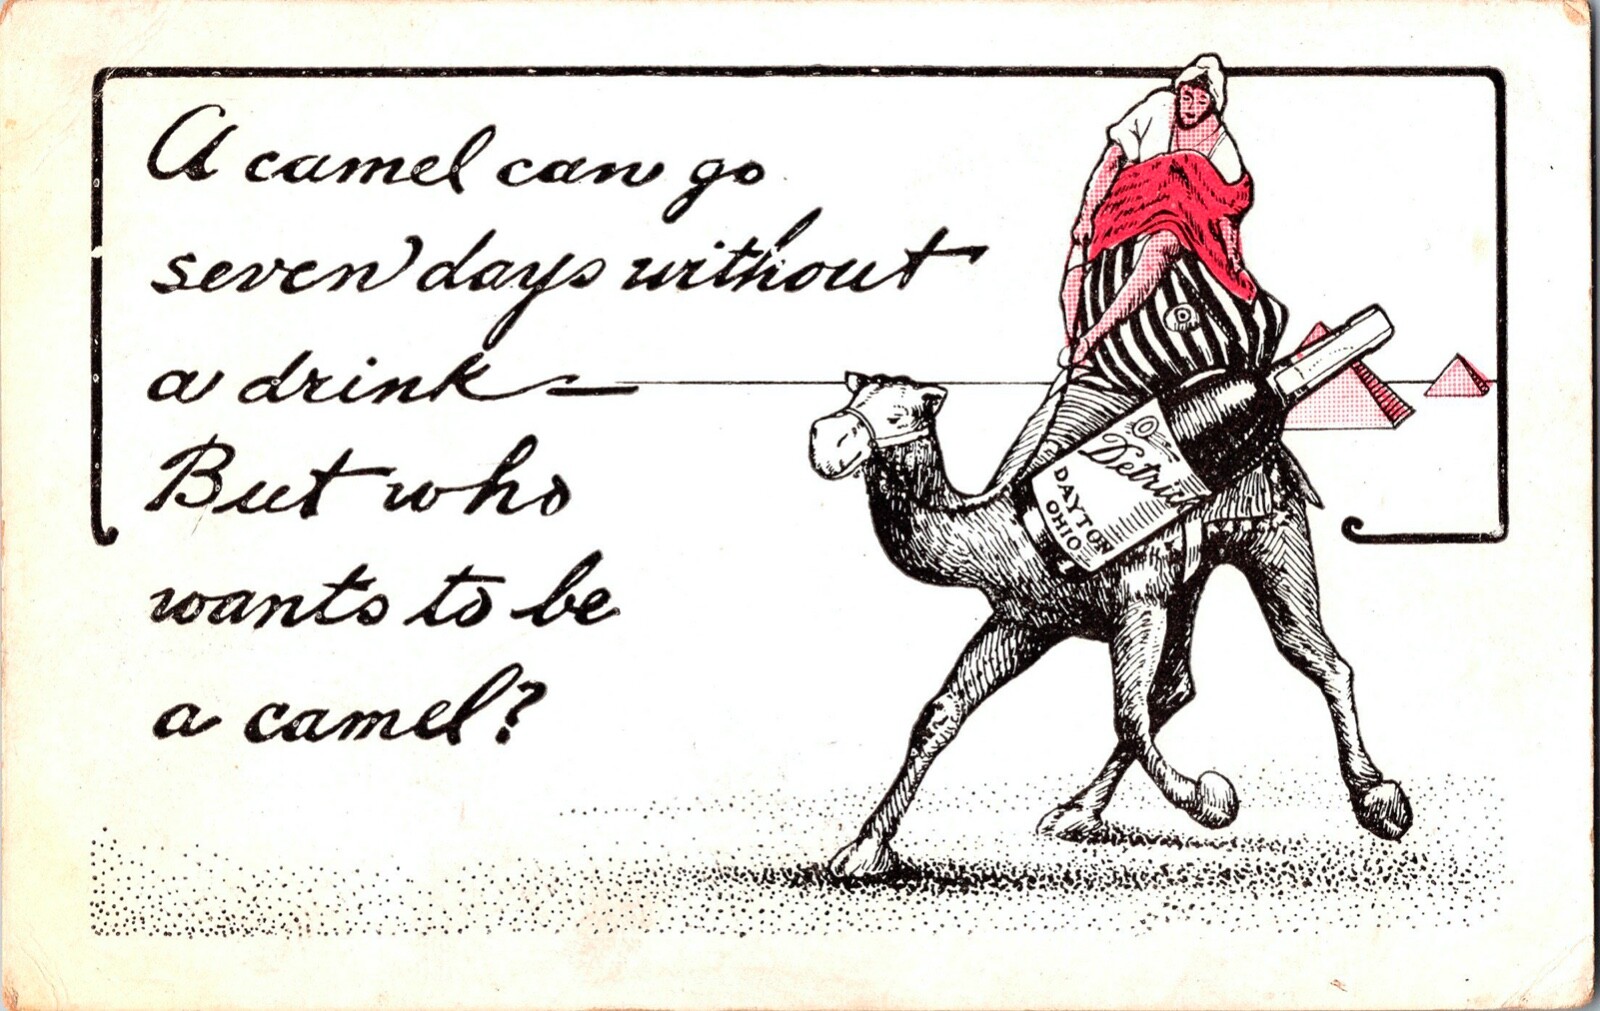 A camel can go
seven days without
a drink —
But who
wants to be
a camel?
Detrick
DAYTON
OHIO